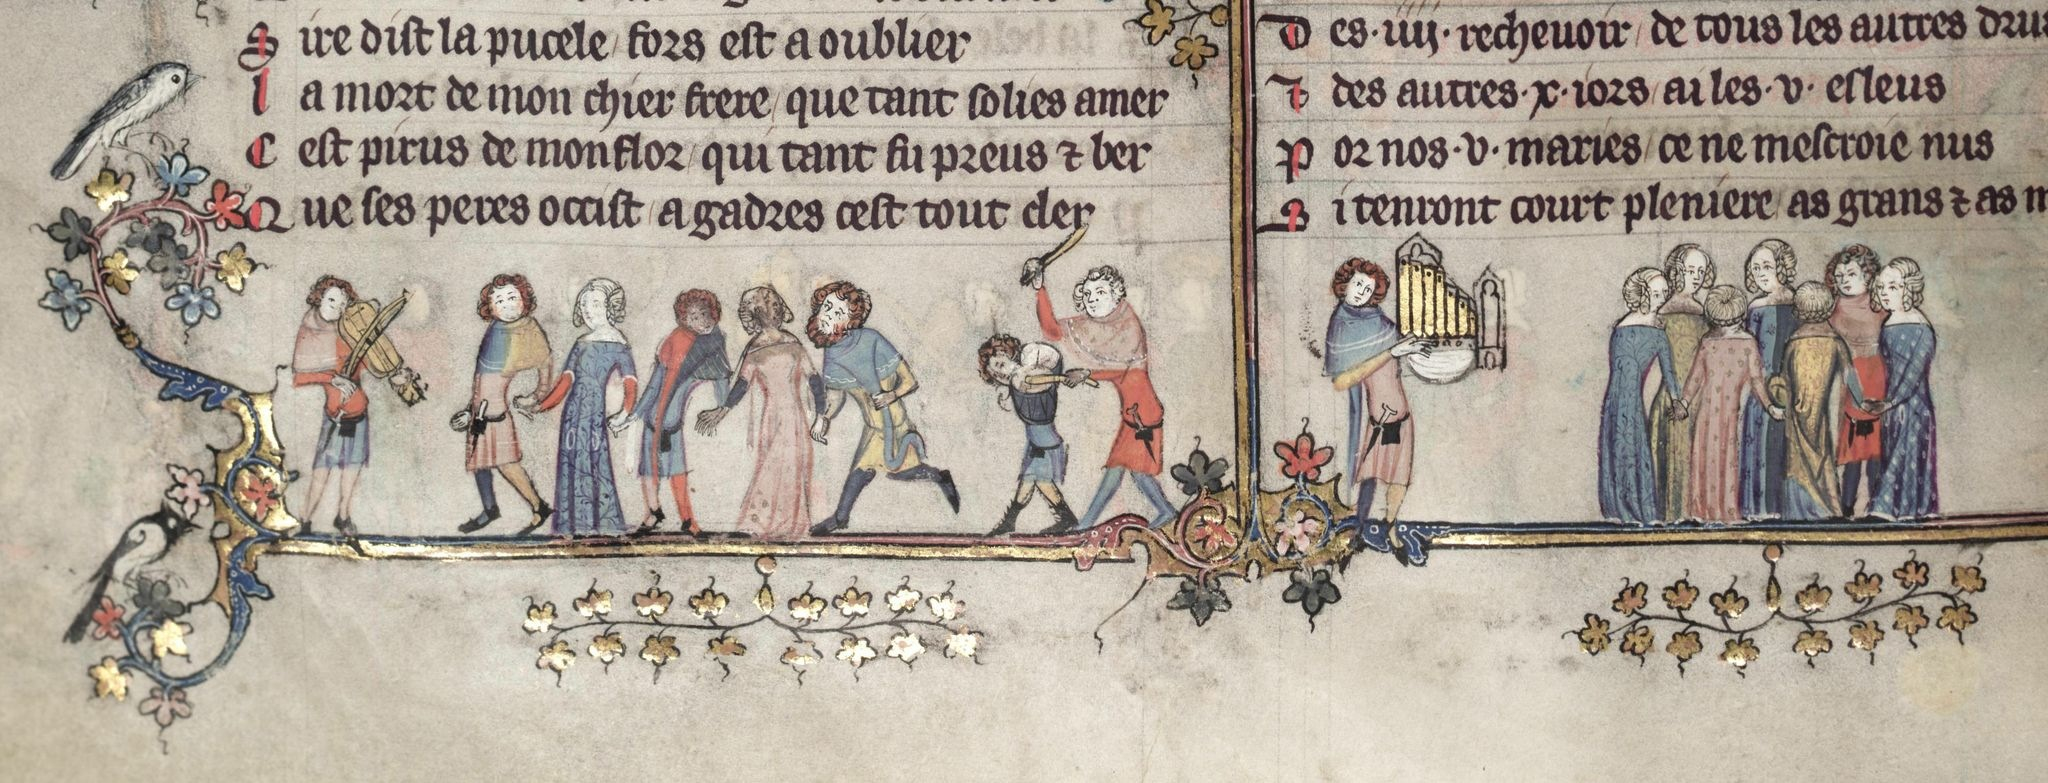 Sire dist la pucele / fors est a oublier
La mort de mon chier frere / que tant solies amer
Cest pirus de monflor / qui tant fu preus ⁊ ber
Que ses peres occist / a gadres cest tout cler
Des · iiij · rechevoir / de tous les autres drus
Et des autres · x · iors / ai les · v · esleus
Por nos · v · maries / ce ne mescroie nus
Si tenront court pleniere / as grans ⁊ as